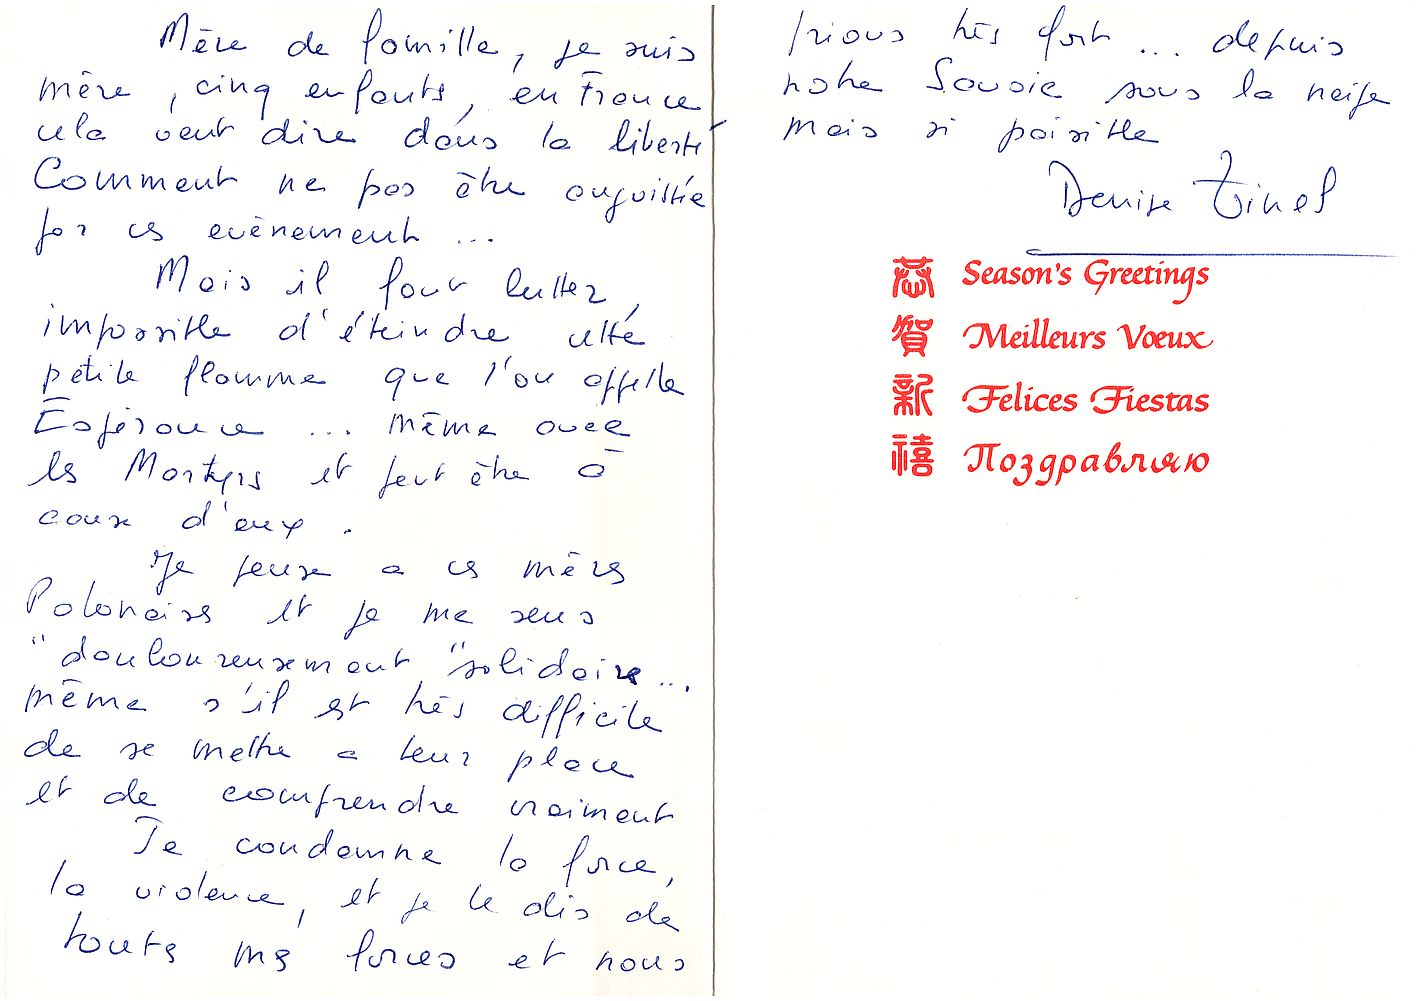 Mère de famille, je suis
mère, cinq enfants, en France
cela veut dire dans la liberté
Comment ne pas être angoissée
par ces evènement ...
Mais il faut lutter,
impossible d'éteindre cette
petite flamme que l'on appelle
Espérance ... même avec
les Martyrs et peut être à
cause d'eux.
Je pense a ces mères
Polonaises et je me sens
"douloureusement" solidaire...
même s'il est très difficile
de se mettre a leur place
et de comprendre vraiment
Je condamne la force,
la violence, et je le dis de
toutes mes forces et nous
prions très fort ... depuis
notre Savoie sous la neige
mais si paisible
Denise Tinel
恭 Season's Greetings
賀 Meilleurs Vœux
新 Felices Fiestas
禧 Поздравляю